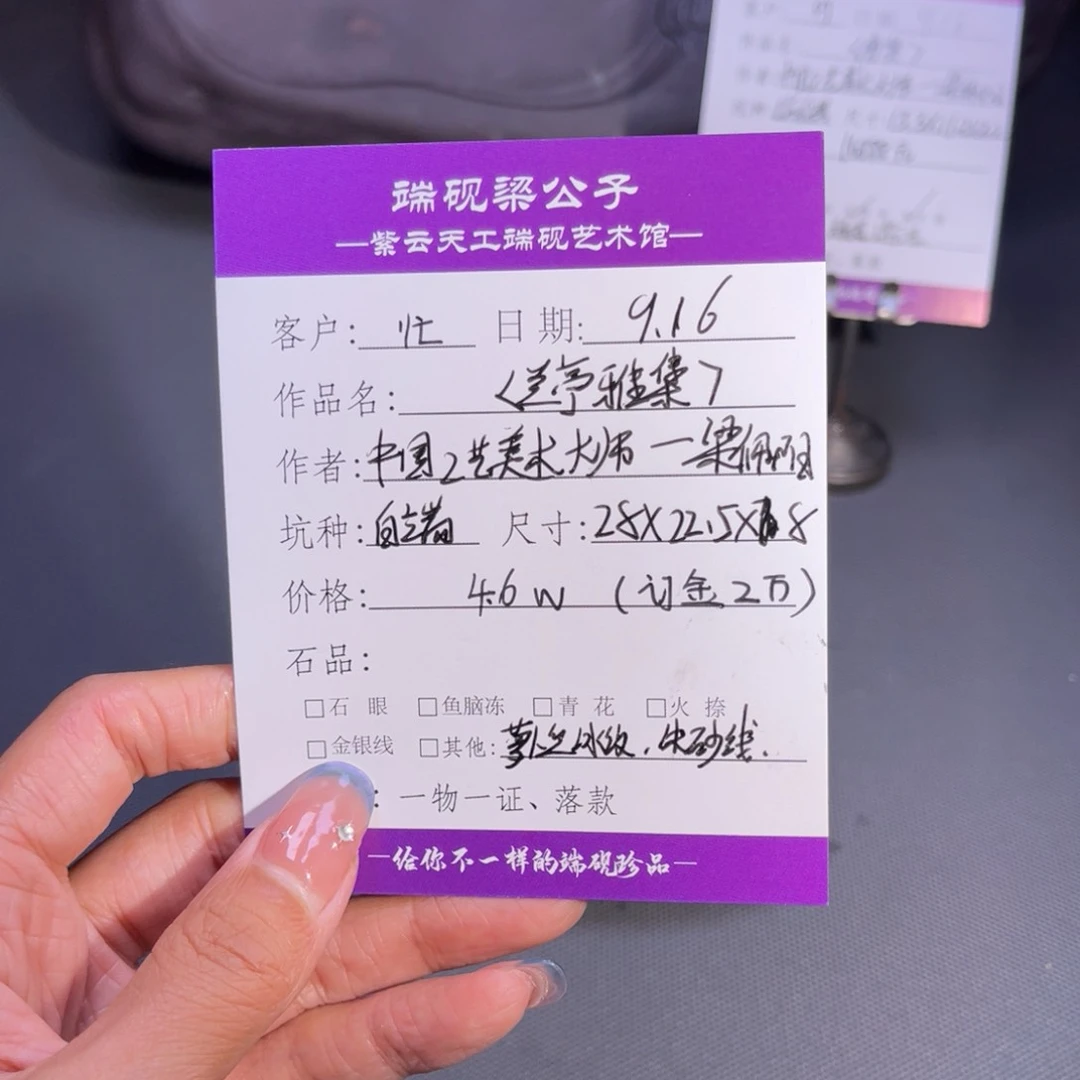 端砚梁公子
—紫云天工端砚艺术馆—
客户: 忙 日期: 9.16
作品名: 《兰亭雅集》
作者: 中国工艺美术大师—梁佩阳
坑种: 白端 尺寸: 28X22.5X8
价格: 4.6W (订金2万)
石品:
□石眼 □鱼脑冻 □青花 □火捺
□金银线 □其他: 冰纹.朱砂线.
: 一物一证、落款
—给你不一样的端砚珍品—